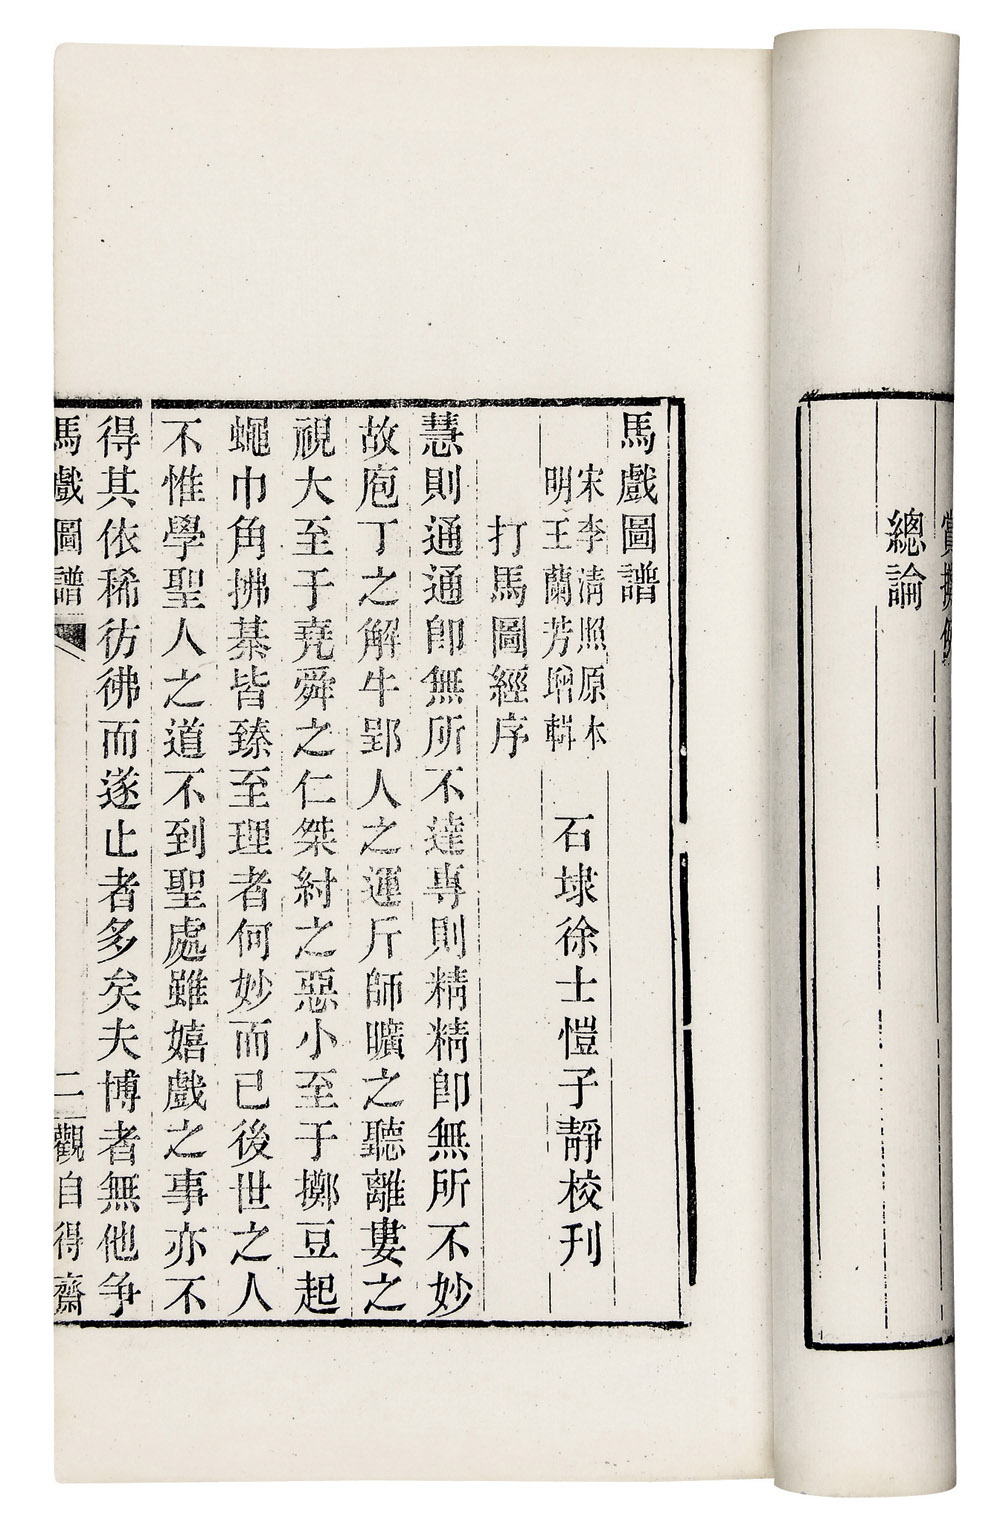 總論
馬戲圖譜
宋李清照原本
明王蘭芳增輯
石埭徐士愷子靜校刊
打馬圖經序
慧則通通卽無所不達專則精精卽無所不妙
故庖丁之解牛郢人之運斤師曠之聽離婁之
視大至于堯舜之仁桀紂之惡小至于擲豆起
蠅巾角拂棊皆臻至理者何妙而已後世之人
不惟學聖人之道不到聖處雖嬉戲之事亦不
得其依稀彷彿而遂止者多矣夫博者無他爭
馬戲圖譜
二觀自得齋